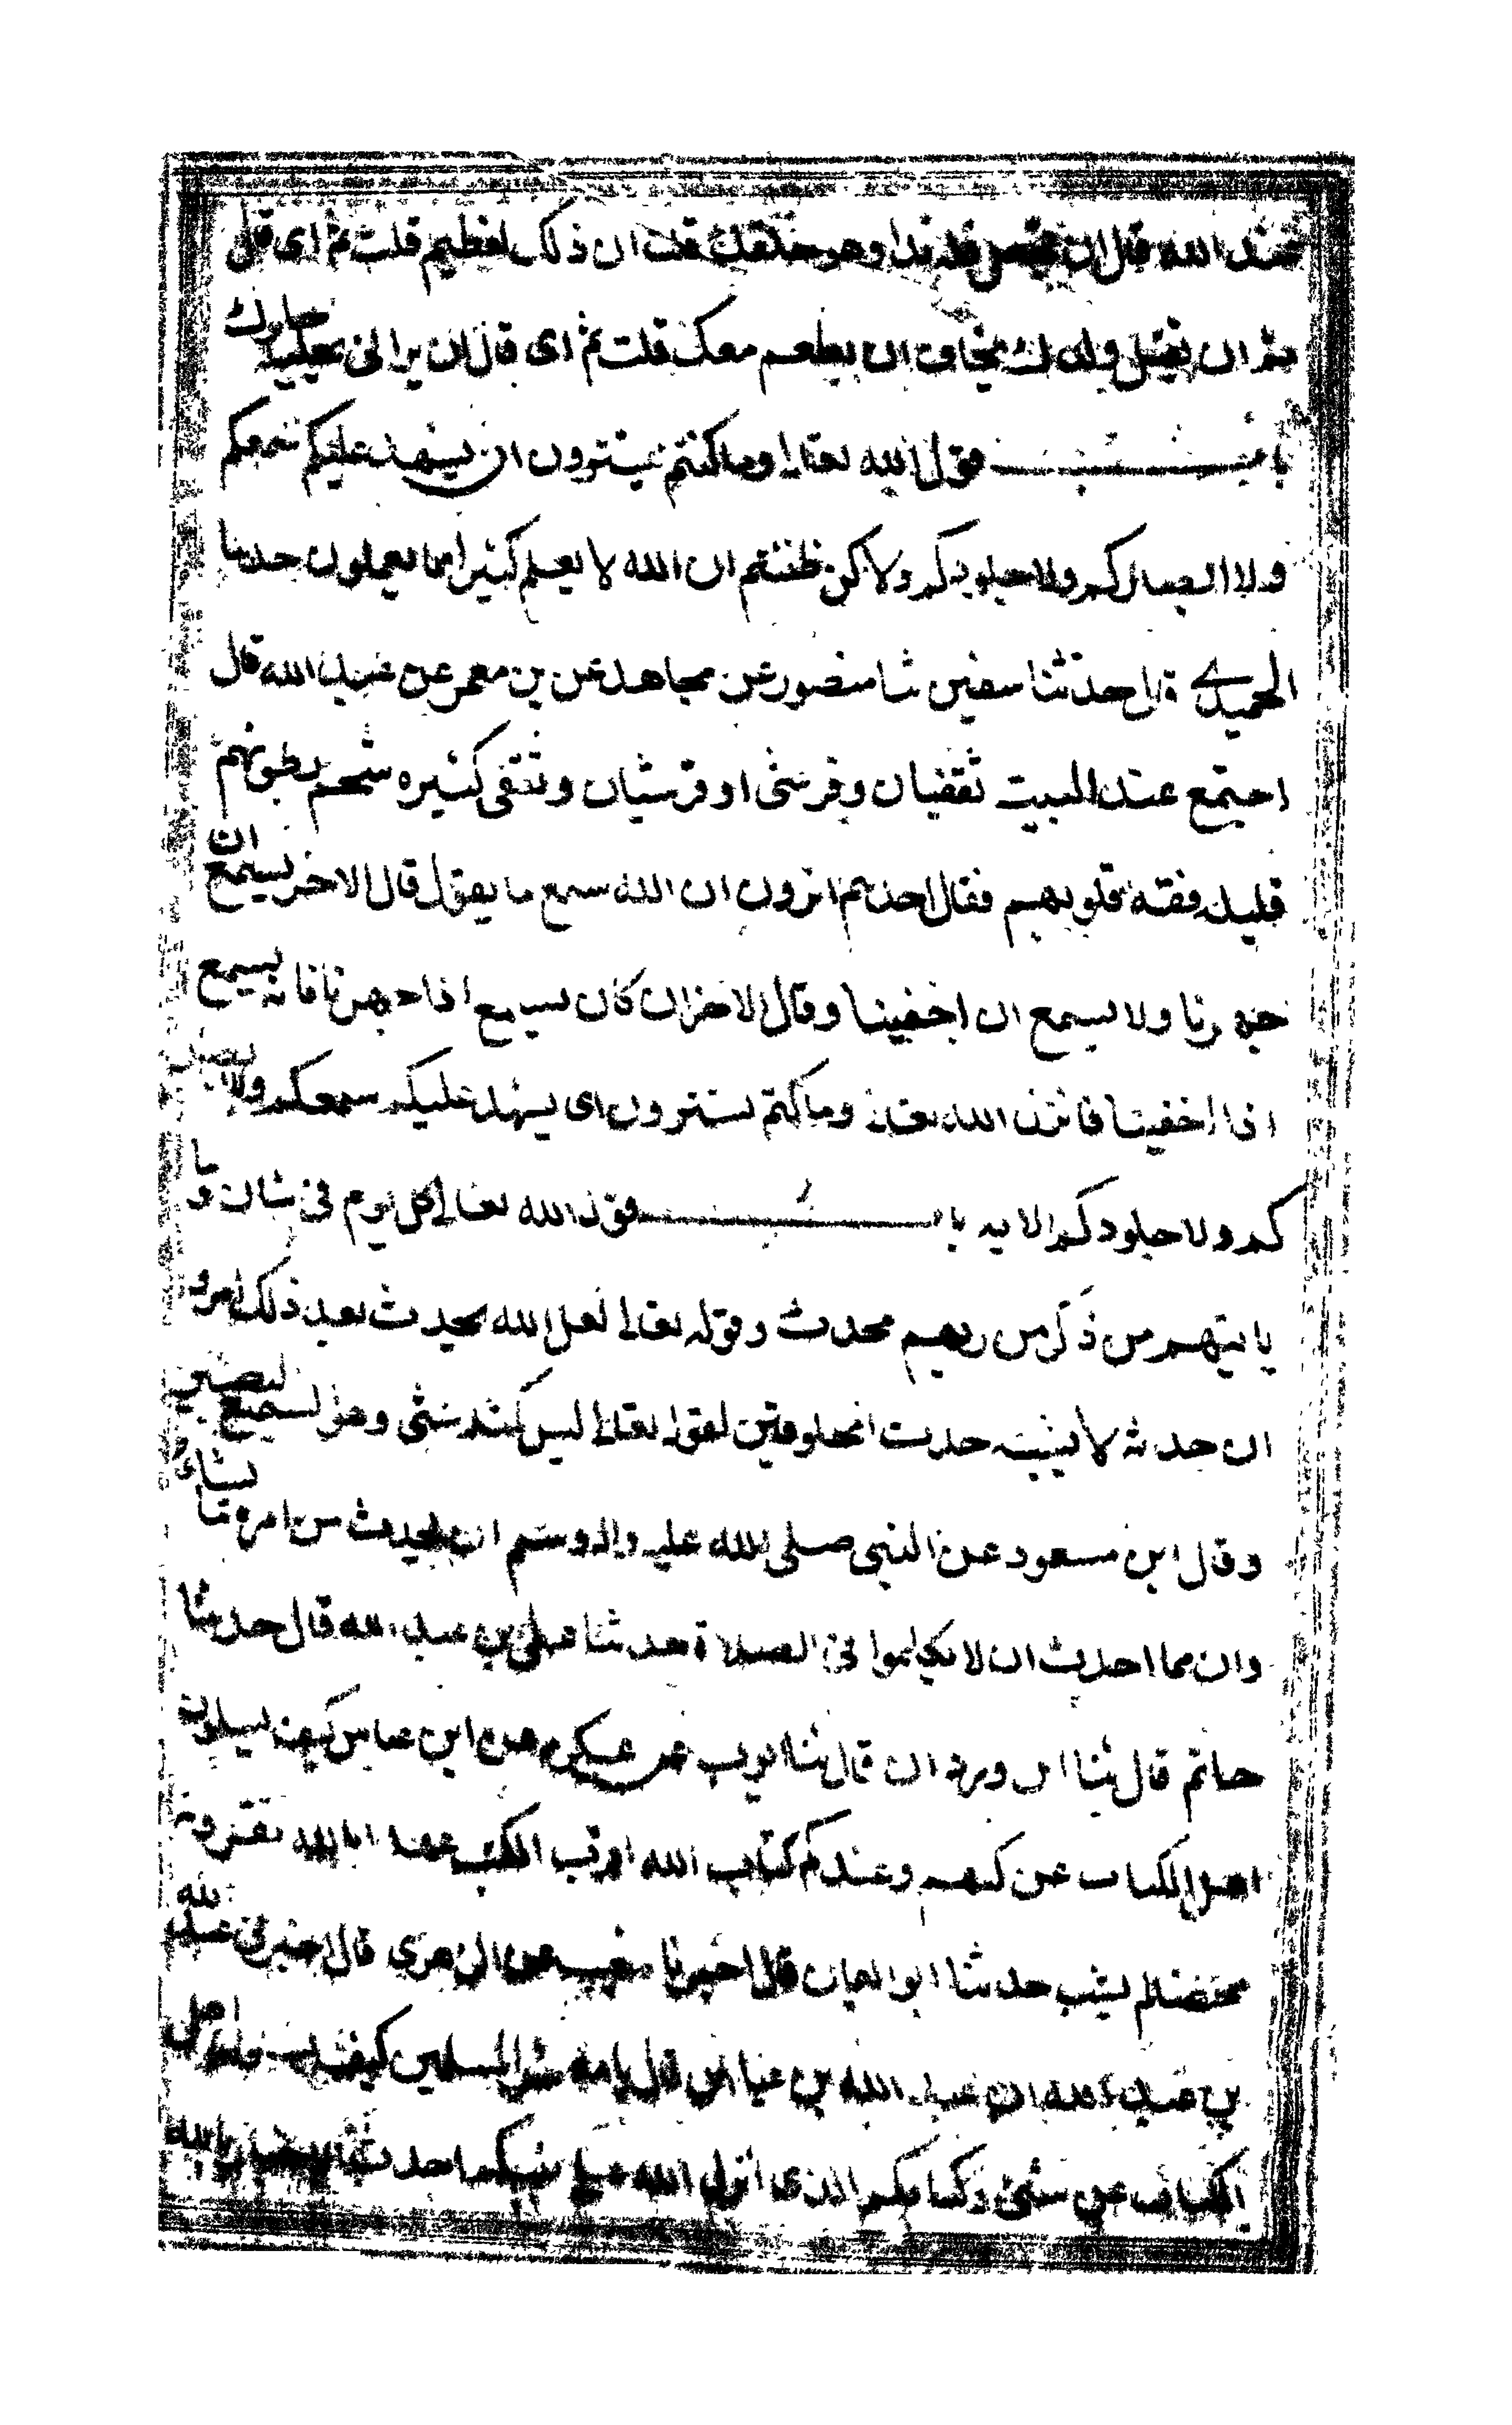 عند الله قال ان تجعل لله ندا وهو خلقك قلت ان ذلك لعظيم قلت ثم اى قال
ثم ان تقتل ولدك تخاف ان يطعم معك قلت ثم اى قال ان تزانى بحليلة جارك
باب قول الله تعالى وما كنتم تستترون ان يشهد عليكم سمعكم
ولا ابصاركم ولا جلودكم ولاكن ظننتم ان الله لا يعلم كثيرا مما تعملون حدثنا
الحميدي قال حدثنا سفين ثنا منصور عن مجاهد عن بن معمر عن عبد الله قال
اجتمع عند البيت ثقفيان وقرشى او قرشيان وثقفى كثيره شحم بطونهم
قليله فقه قلوبهم فقال احدهم اترون ان الله سمع ما يقول قال الاخر يسمع ان
جهرنا ولا يسمع ان اخفينا وقال الاخر ان كان يسمع اذا جهرنا فانه يسمع
اذا اخفينا فانزل الله تعالى وما كنتم تستترون اى يشهد عليكم سمعكم ولا ابصار
كم ولا جلودكم الايه باب قول الله تعالى كل يوم فى شان وما
ياتيهم من ذكر من ربهم محدث وقوله تعالى لعل الله يحدث بعد ذلك امرا و
ان حدثه لا يشبه حدث المخلوقين لقوله تعالى ليس كمثله شئى وهو السميع البصير
وقال ابن مسعود عن النبى صلى الله عليه واله وسلم ان الله يحدث من امره ما يشاء
وان مما احدث ان لا تكلموا فى الصلاة حدثنا على بن عبد الله قال حدثنا
حاتم قال ثنا ابن وردان قال ثنا ايوب عن عكرمه عن ابن عباس كيف تسيلون
اهل الكتاب عن كتبهم وعندكم كتاب الله اقرب الكتب عهدا بالله تقرونه
محضا لم يشب حدثنا ابو اليمان قال اخبرنا شعيب عن الزهري قال اخبرنى عبيد الله
بن عبد الله ان عبد الله بن عباس قال يا معشر المسلمين كيف تسالون اهل
الكتاب عن شئى وكتابكم الذى انزل الله على نبيكم احدث الاخبار بالله